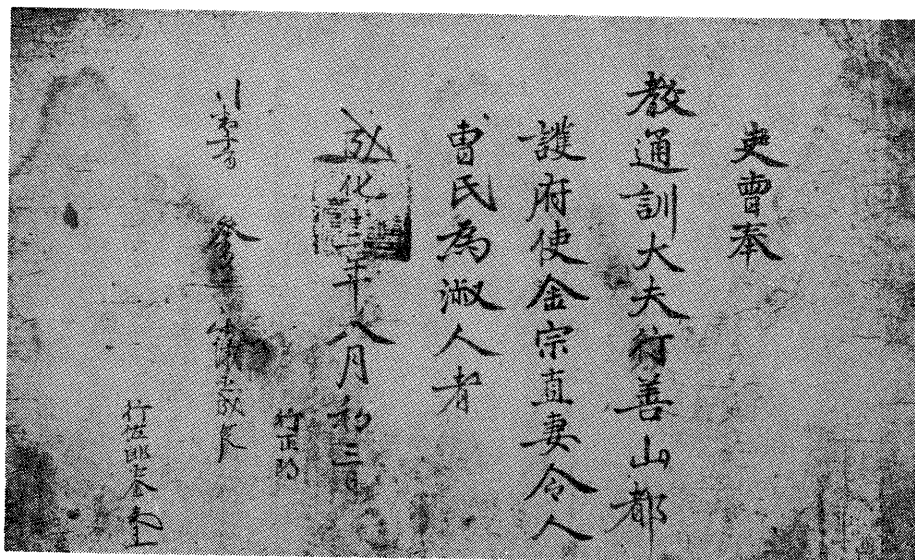 吏曹奉
教通訓大夫行善山都
護府使金宗直妻令人
曺氏為淑人者
成化十二年八月初三日
行正郎
行佐郎